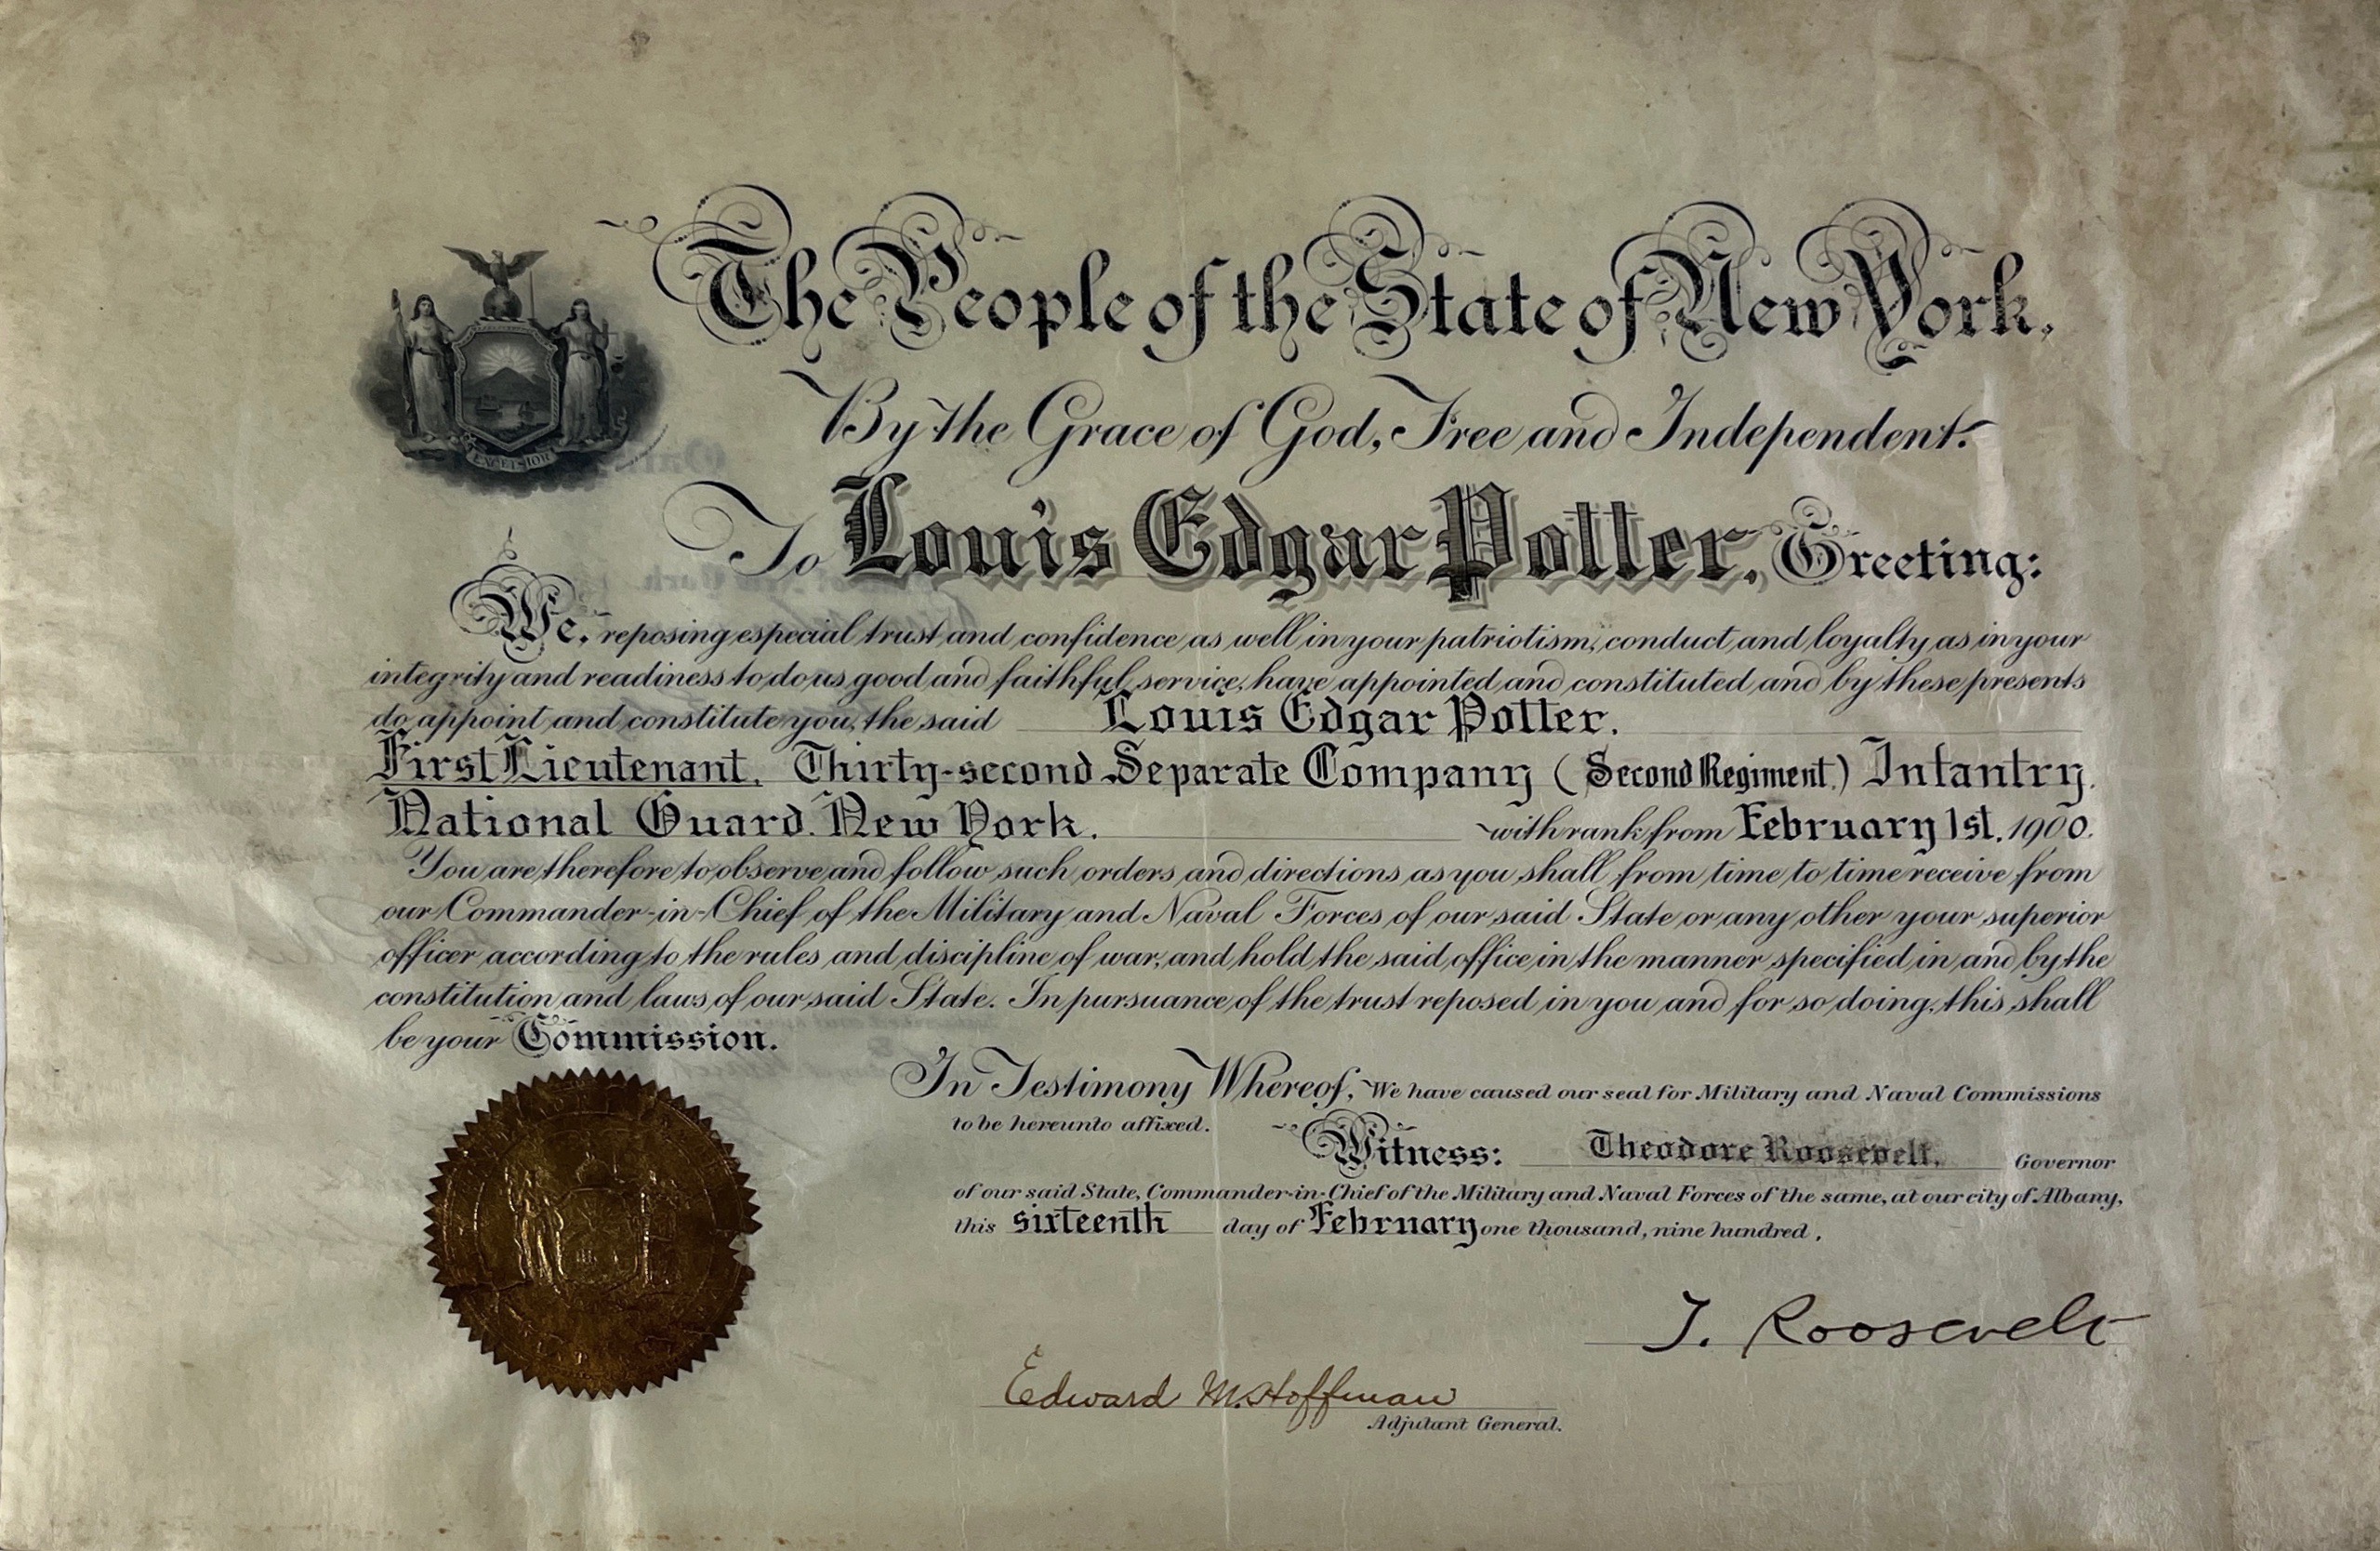 The People of the State of New York,
By the Grace of God, Free and Independent.
EXCELSIOR
To Louis Edgar Potter, Greeting:
We, reposing especial trust and confidence as well in your patriotism, conduct and loyalty as in your
integrity and readiness to do us good and faithful service, have appointed and constituted and by these presents
do appoint and constitute you, the said Louis Edgar Potter.
First Lieutenant, Thirty-second Separate Company (Second Regiment.) Infantry,
National Guard, New York. with rank from February 1st, 1900.
You are therefore to observe and follow such orders and directions as you shall from time to time receive from
our Commander-in-Chief of the Military and Naval Forces of our said State or any other your superior
officer according to the rules and discipline of war, and hold the said office in the manner specified in and by the
constitution and laws of our said State. In pursuance of the trust reposed in you and for so doing, this shall
be your Commission.
In Testimony Whereof, We have caused our seal for Military and Naval Commissions
to be hereunto affixed.
Witness: Theodore Roosevelt, Governor
of our said State, Commander-in-Chief of the Military and Naval Forces of the same, at our city of Albany,
this sixteenth day of February one thousand, nine hundred.
T. Roosevelt
Edward M. Hoffman
Adjutant General.